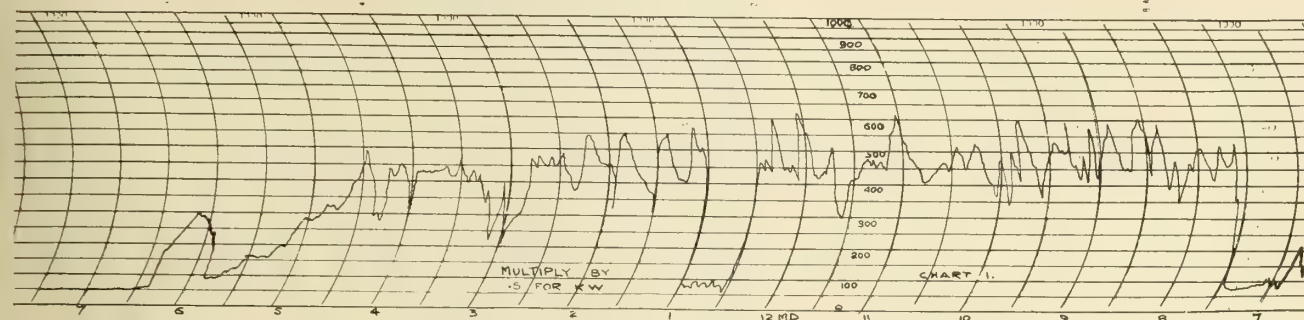 1000
900
800
700
600
500
400
300
200
100
0
MULTIPLY BY
.5 FOR KW
CHART 1.
7 6 5 4 3 2 1 12 MD 11 10 9 8 7